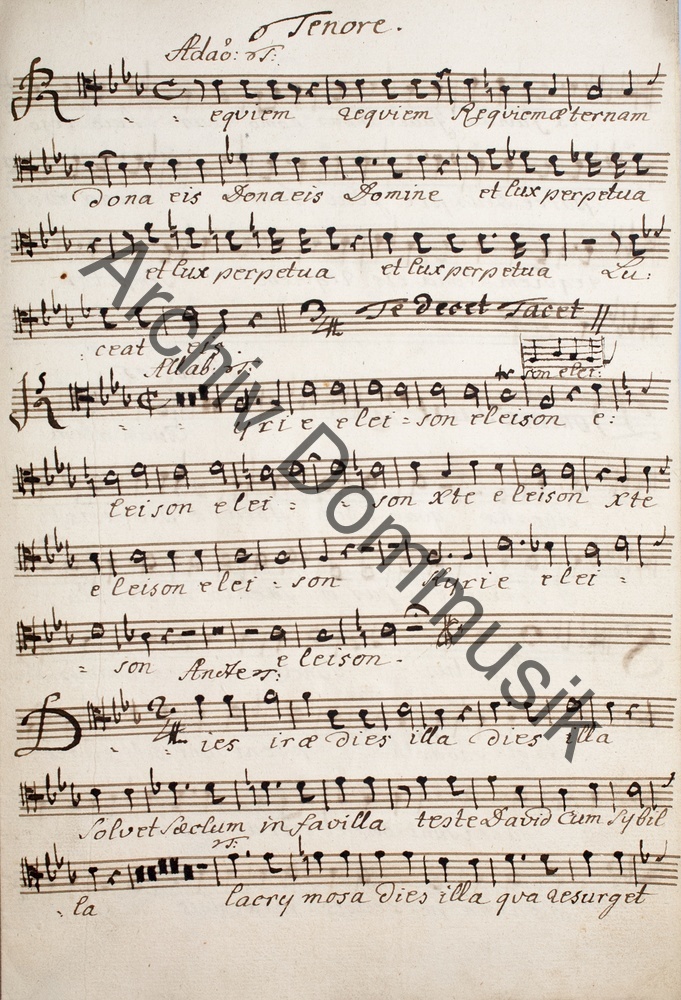 Tenore.
Adaõ:
Requiem requiem Requiem æternam
dona eis Dona eis Domine et lux perpetua
et lux perpetua et lux perpetua Lu:
ceat eis
Te decet Tacet
son elei:
Allab:
Kyrie elei - son eleison e:
leison elei - - son Xte eleison Xte
eleison elei - son Kyrie elei -
- son eleison.
Andte
Dies iræ dies illa dies illa
Solvet Sæclum in favilla teste David cum sybil
la lacrymosa dies illa qua resurget
Archiv Dommusik